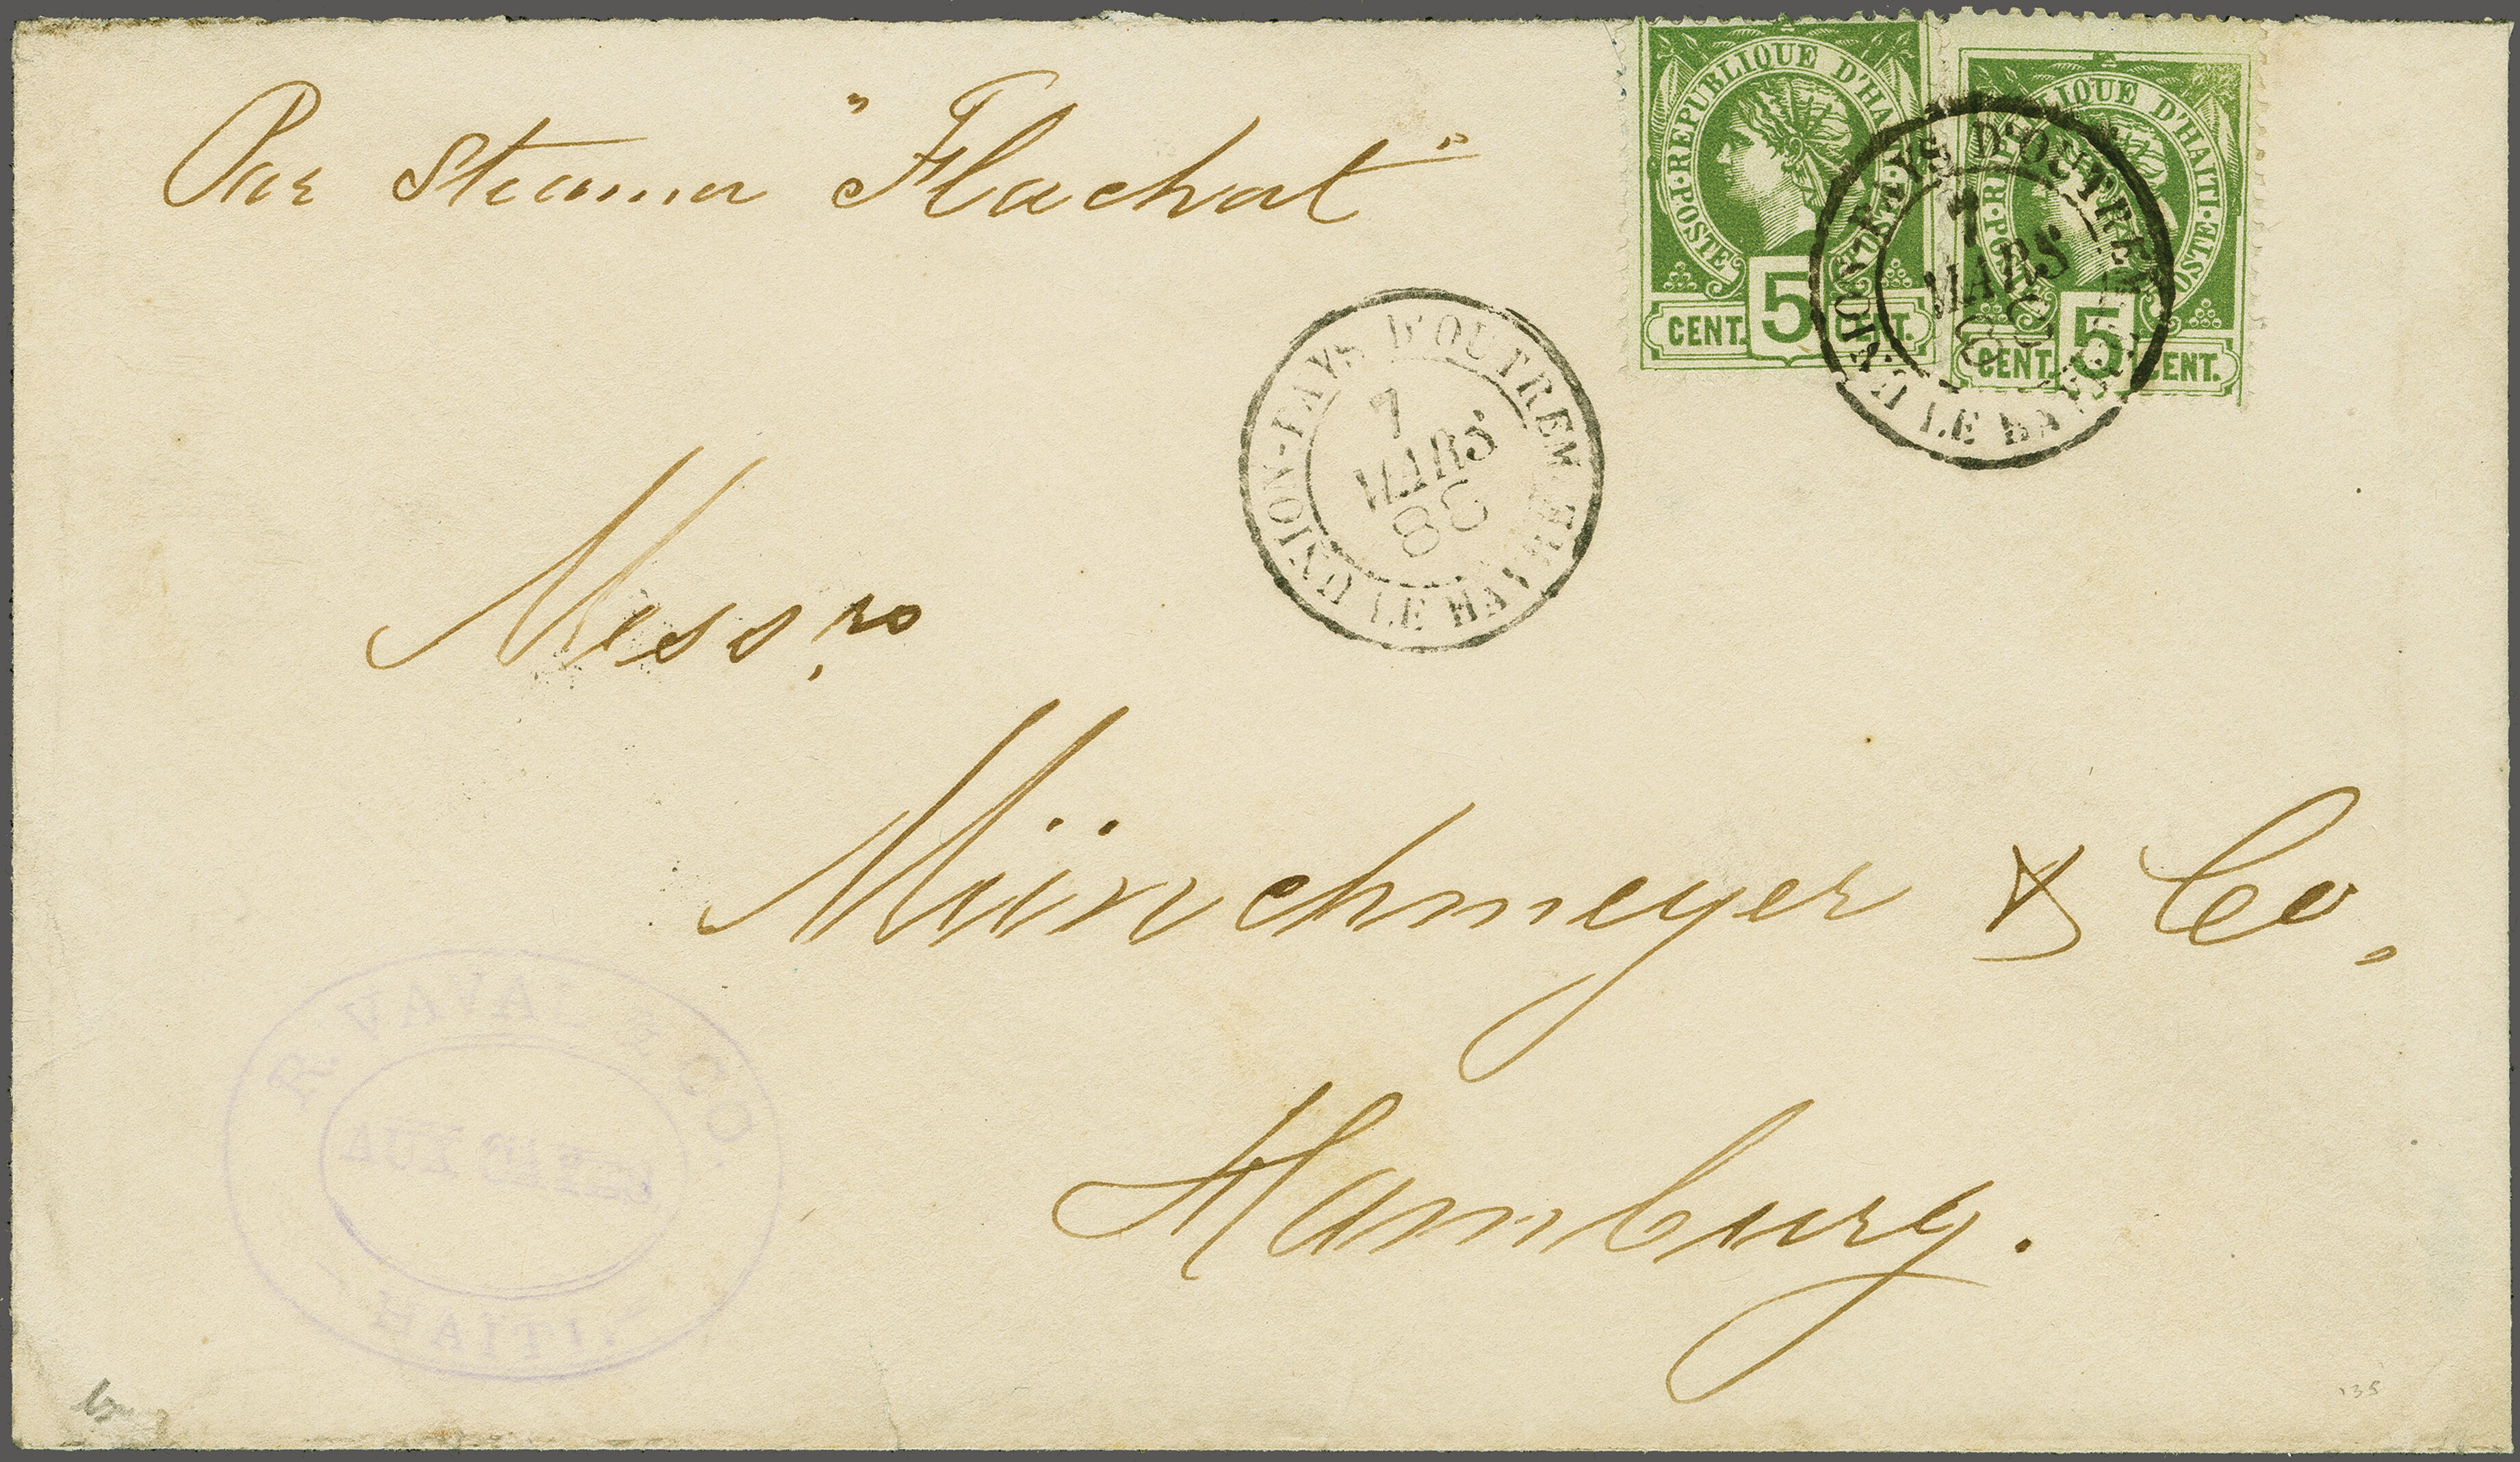 Par Steamer "Flachat"
RÉPUBLIQUE D'HAITI
POSTE
CENT. 5 CENT.
RÉPUBLIQUE D'HAITI
POSTE
CENT. 5 CENT.
UNION-PAYS D'OUTREM
7
MARS
88
LE HAVRE
UNION-PAYS D'OUTREM
7
MARS
88
LE HAVRE
Messrs
Münchmeyer & Co.
Hamburg.
R. VAVAL & CO.
AUX CAYES
HAITI
135